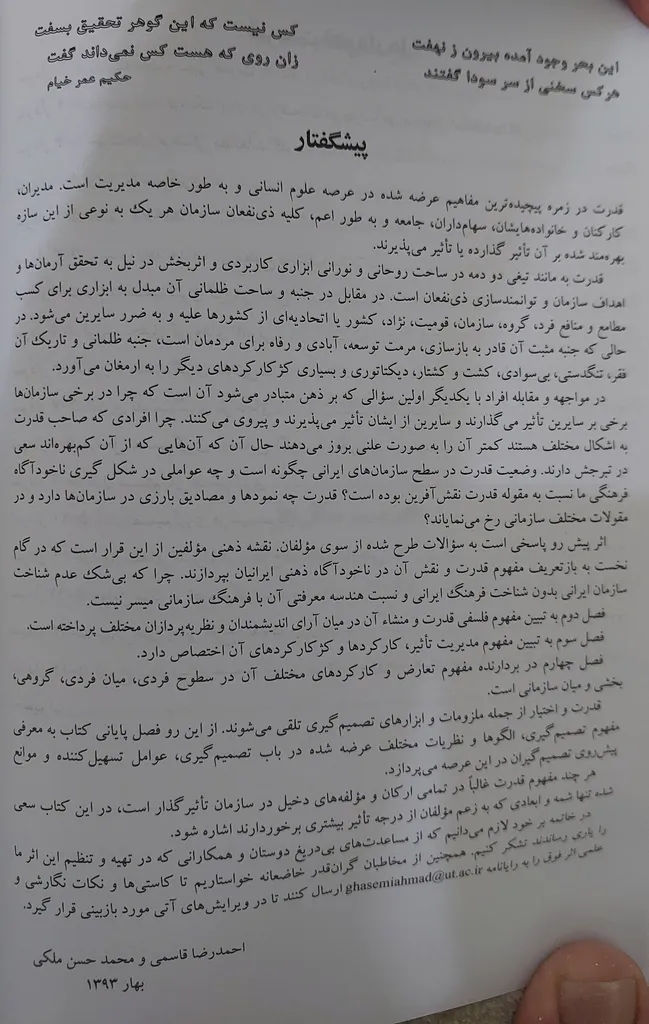 این بحر وجود آمده بیرون ز نهفت
کس نیست که این گوهر تحقیق بسفت
هرکس سخنی از سر سودا گفتند
زان روی که هست کس نمی‌داند گفت
حکیم عمر خیام
پیشگفتار
قدرت در زمره پیچیده‌ترین مفاهیم عرضه شده در عرصه علوم انسانی و به طور خاصه مدیریت است. مدیران،
کارکنان و خانواده‌هایشان، سهام‌داران، جامعه و به طور اعم، کلیه ذی‌نفعان سازمان هر یک به نوعی از این سازه
بهره‌مند شده بر آن تأثیر گذارده یا تأثیر می‌پذیرند.
قدرت به مانند تیغی دو دمه در ساحت روحانی و نورانی ابزاری کاربردی و اثربخش در نیل به تحقق آرمان‌ها و
اهداف سازمان و توانمندسازی ذی‌نفعان است. در مقابل در جنبه و ساحت ظلمانی آن مبدل به ابزاری برای کسب
مطامع و منافع فرد، گروه، سازمان، قومیت، نژاد، کشور یا اتحادیه‌ای از کشورها علیه و به ضرر سایرین می‌شود. در
حالی که جنبه مثبت آن قادر به بازسازی، مرمت توسعه، آبادی و رفاه برای مردمان است، جنبه ظلمانی و تاریک آن
فقر، تنگدستی، بی‌سوادی، کشت و کشتار، دیکتاتوری و بسیاری کژکارکردهای دیگر را به ارمغان می‌آورد.
در مواجهه و مقابله افراد با یکدیگر اولین سؤالی که بر ذهن متبادر می‌شود آن است که چرا در برخی سازمان‌ها
برخی بر سایرین تأثیر می‌گذارند و سایرین از ایشان تأثیر می‌پذیرند و پیروی می‌کنند. چرا افرادی که صاحب قدرت
به اشکال مختلف هستند کمتر آن را به صورت علنی بروز می‌دهند حال آن که آن‌هایی که از آن کم‌بهره‌اند سعی
در تبرجش دارند. وضعیت قدرت در سطح سازمان‌های ایرانی چگونه است و چه عواملی در شکل گیری ناخودآگاه
فرهنگی ما نسبت به مقوله قدرت نقش‌آفرین بوده است؟ قدرت چه نمودها و مصادیق بارزی در سازمان‌ها دارد و در
مقولات مختلف سازمانی رخ می‌نمایاند؟
اثر پیش رو پاسخی است به سؤالات طرح شده از سوی مؤلفان. نقشه ذهنی مؤلفین از این قرار است که در گام
نخست به بازتعریف مفهوم قدرت و نقش آن در ناخودآگاه ذهنی ایرانیان بپردازند. چرا که بی‌شک عدم شناخت
سازمان ایرانی بدون شناخت فرهنگ ایرانی و نسبت هندسه معرفتی آن با فرهنگ سازمانی میسر نیست.
فصل دوم به تبیین مفهوم فلسفی قدرت و منشاء آن در میان آرای اندیشمندان و نظریه‌پردازان مختلف پرداخته است.
فصل سوم به تبیین مفهوم مدیریت تأثیر، کارکردها و کژکارکردهای آن اختصاص دارد.
فصل چهارم در بردارنده مفهوم تعارض و کارکردهای مختلف آن در سطوح فردی، میان فردی، گروهی،
بخشی و میان سازمانی است.
قدرت و اختیار از جمله ملزومات و ابزارهای تصمیم‌گیری تلقی می‌شوند. از این رو فصل پایانی کتاب به معرفی
مفهوم تصمیم‌گیری، الگوها و نظریات مختلف عرضه شده در باب تصمیم‌گیری، عوامل تسهیل‌کننده و موانع
پیش‌روی تصمیم‌گیران در این عرصه می‌پردازد.
هر چند مفهوم قدرت غالباً در تمامی ارکان و مؤلفه‌های دخیل در سازمان تأثیرگذار است، در این کتاب سعی
شده تنها شمه و ابعادی که به زعم مؤلفان از درجه تأثیر بیشتری برخوردارند اشاره شود.
در خاتمه بر خود لازم می‌دانیم که از مساعدت‌های بی‌دریغ دوستان و همکارانی که در تهیه و تنظیم این اثر ما
را یاری رساندند تشکر کنیم. همچنین از مخاطبان گران‌قدر خاضعانه خواستاریم تا کاستی‌ها و نکات نگارشی و
علمی اثر فوق را به رایانامه ghasemiahmad@ut.ac.ir ارسال کنند تا در ویرایش‌های آتی مورد بازبینی قرار گیرد.
احمدرضا قاسمی و محمد حسن ملکی
بهار ۱۳۹۳